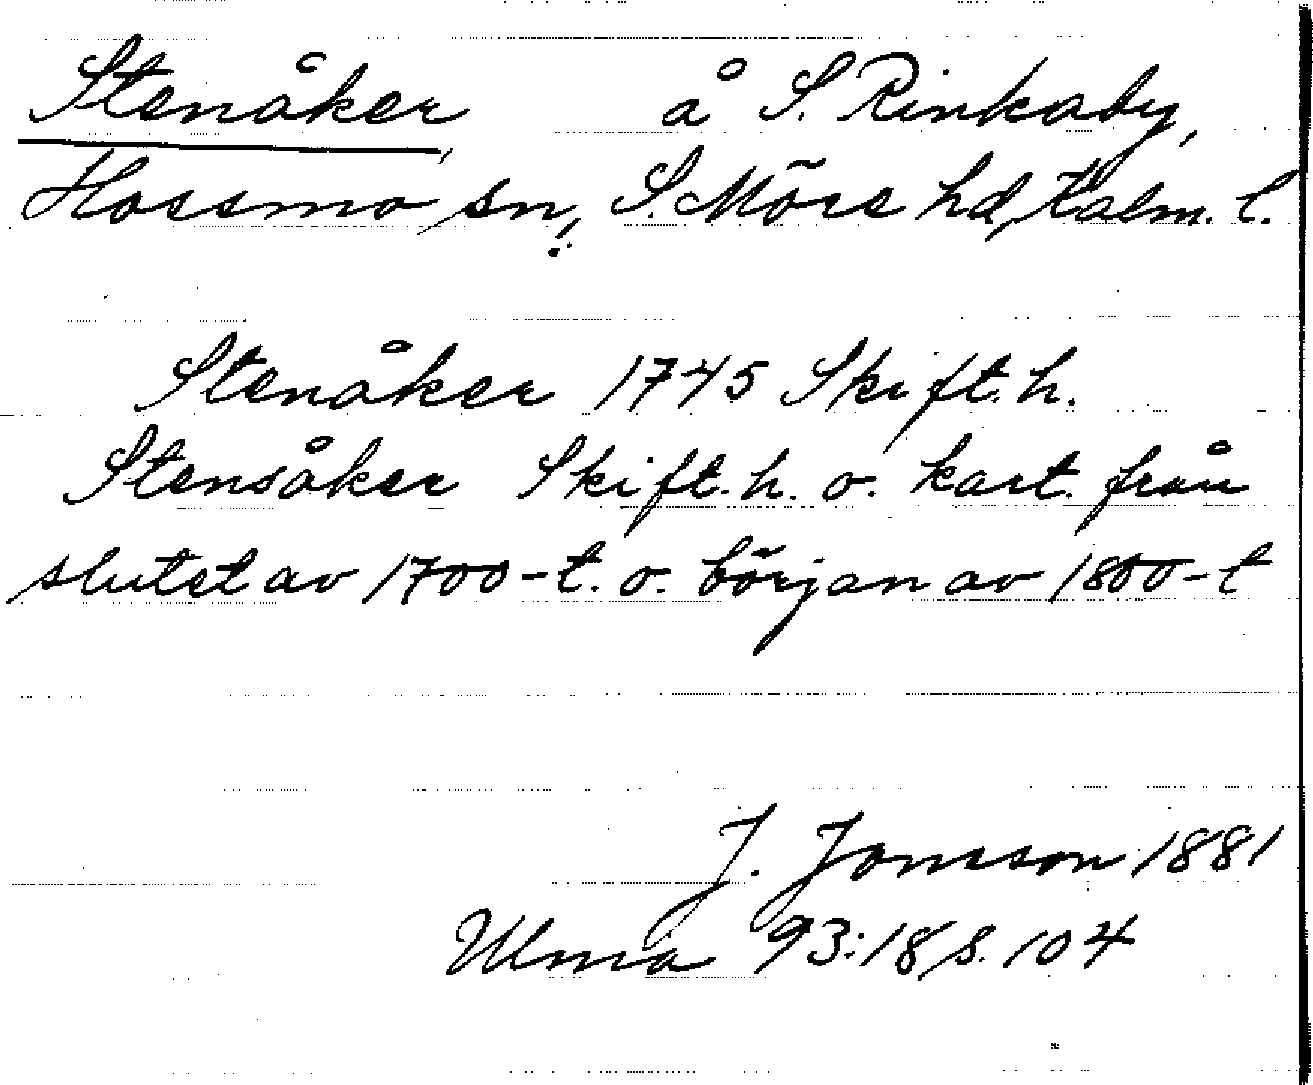 Stenåker, å S. Rinkaby,
Hossmo sn, S. Möre hd, Kalm. l.
Stenåker 1745 Skift. h.
Stensåker Skift. h. o. kart. från
slutet av 1700-t. o. början av 1800-t
J. Jonsson 1881
Ulma 93:18, s. 104